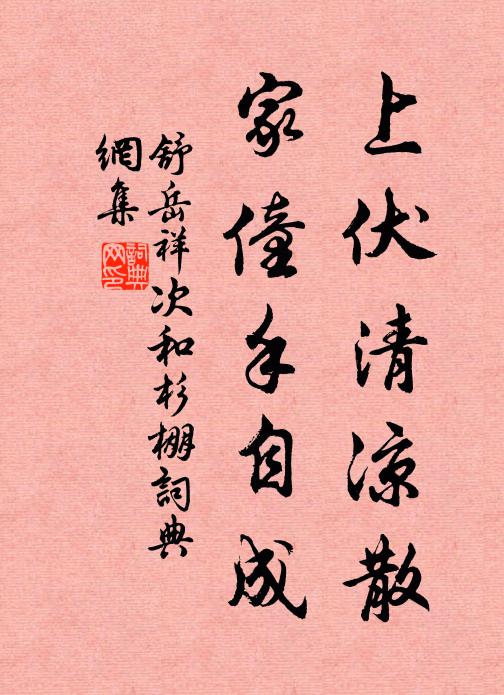 上伏清涼散
家僮手自成
舒岳祥次和杉棚詞典
網集
詞典網印